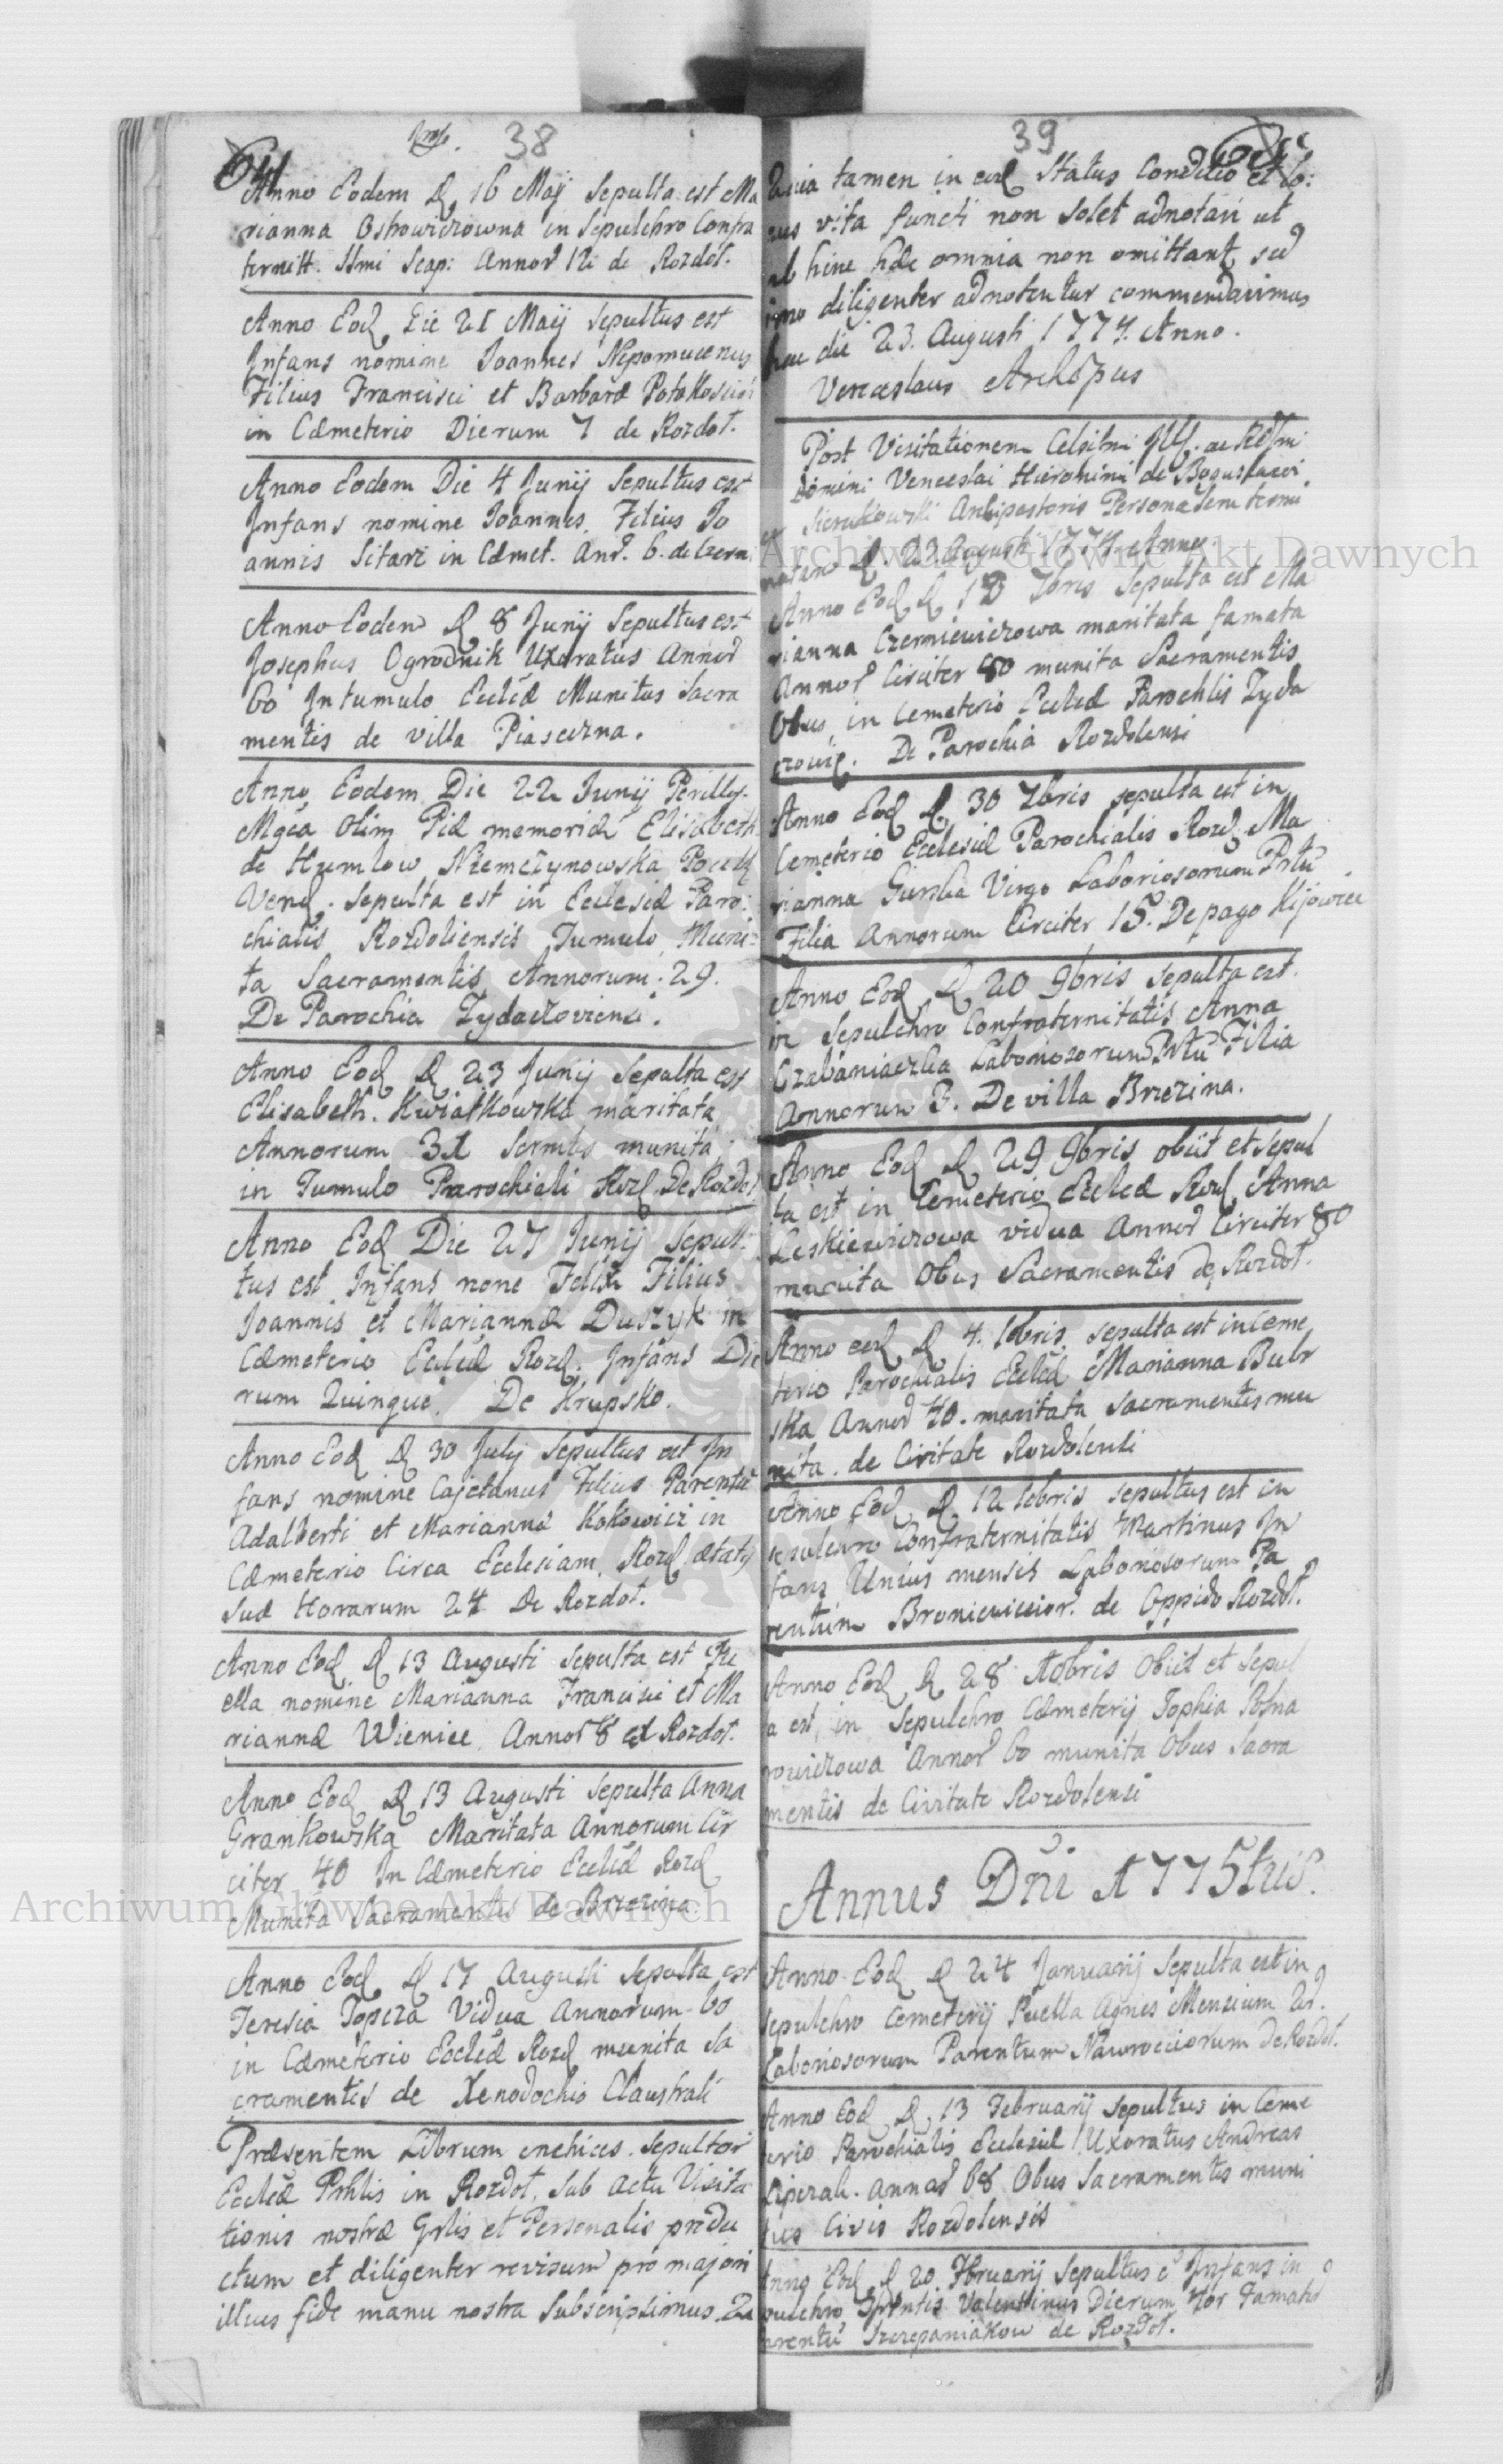 38
Anno Eodem D 16 Maij Sepulta est Ma
rianna Ostrowiczowna in Sepulchro Confra
ternitt. Ssmi Scap: Annor 12 de Rozdoł.
Anno Eod Die 21 Maij Sepultus est
Infans nomine Joannes Nepomucenus
Filius Francisci et Barbaræ
in Cæmeterio Dierum 7 de Rozdoł.
Anno Eodem Die 4 Junij Sepultus est
Infans nomine Joannes Filius Jo
annis Sitarz in Cæmet. An. 6. de
Anno Eodem D 8 Junij Sepultus est
Josephus Ogrodnik Uxoratus Annor
60 In tumulo Ecclæ Munitus Sacra
mentis de villa Piaseczna.
Anno Eodem Die 22 Junij Perills.
Mgca Olim Piæ memoriæ Elisabeth
de Humlow Niemczynowska
Vend. Sepulta est in Ecclesiæ Paro:
chialis Rozdoliensis Tumulo Muni:
ta Sacramentis Annorum: 29.
De Parochia Zydaczoviensi.
Anno Eod D 23 Junij Sepulta est
Elisabeth. Kwiatkowska maritata
Annorum 31 munita
in Tumulo Parochiali Rozd De Rozdoł
Anno Eod Die 27 Junij Sepul:
tus est Infans none Felix Filius
Joannis et Mariannæ Duszyk in
Cæmeterio Ecclæ Rozd. Infans Die
rum Quinque. De Krupsko.
Anno Eod D 30 July Sepultus est In
fans nomine Cajetanus Filius Parentū
Adalberti et Mariannæ Kokowicz in
Cæmeterio Circa Ecclesiam Rozd ætatis
suæ Horarum 24 De Rozdoł.
Anno Eod D 13 Augusti Sepulta est Pu
ella nomine Marianna Francisci et Ma
riannæ Wienice Annor 8 Rozdoł.
Anno Eod D 13 Augusti Sepulta Anna
Grankowska Maritata Annorum Cir
citer 40 In Cæmeterio Ecclæ Rozd
Munita Sacramentis de Brzezina
Anno Eod D 17 Augusti Sepulta est
Teresia Topcza Vidua Annorum 60
in Cæmeterio Ecclæ Rozd munita Sa
cramentis de Xenodochio Claustrali
Præsentem Librum Sepultor
Ecclæ Prhlis in Rozdoł. Sub Actu Visita
tionis nostræ Gnlis et Personalis produ
ctum et diligenter revisum pro majori
illius fide manu nostra Subscripsimus. Qu
39
Quia tamen in eod Status Conditio et lo:
cus vita functi non solet adnotari ut
ab hinc hæc omnia non omittant sed
imo diligenter adnotentur commendavimus
die 23. Augusti 1774. Anno.
Venceslaus Archōpus
Post Visitationem Celsissimi
Domini Venceslai Hieronimi de Bogusławi
Sierakowski Archipastoris
D. 23 Augusti 1774 Anno.
Anno Eod D 7bris Sepulta est Ma
rianna Czerniewiczowa maritata famata
Annor Circiter 80 munita Sacramentis
Obus in Cemeterio Ecclæ Parochlis Zyda
czowie. De Parochia Rozdolensi
Anno Eod D 30 7bris sepulta est in
Cemeterio Ecclesiæ Parochialis Rozd Ma
rianna Virgo Laboriosorum Prtū
Filia Annorum Circiter 18. De pago Kijowiec
Anno Eod D 20 9bris sepulta est
in Sepulchro Confraternitatis Anna
Czabaniaczka Laboriosorum Prtū Filia
Annorum 3. De villa Brzezina.
Anno Eod D 29 9bris obiit et Sepul
ta est in Cemeterio Ecclæ Rozd Anna
Leskiewiczowa vidua Annor Circiter 80
munita Obus Sacramentis de Rozdoł.
Anno eod D 4. Xbris sepulta est in Ceme
terio Parochialis Ecclæ Marianna Bubr
ska Annor 40. maritata Sacramentis mu
nita. de Civitate Rozdolensi
Anno Eod D 12 Xbris sepultus est in
sepulchro Confraternitatis Martinus In
fans Unius mensis Laboriosorum Pa
rentum Broniewicior. de Oppido Rozdoł.
Anno Eod D 28 Xbris Obiit et Sepul
ta est in Sepulchro Cæmeterij Sophia
Annor 60 munita Obus Sacra
mentis de Civitate Rozdolensi
Annus Dni 1775tus.
Anno Eod D 24 Januarij Sepulta est in
sepulchro Cemeterij Puella Agnes Mensium
Laboriosorum Parentum Nawrociiorum De Rozdoł.
Anno Eod D 13 Februarij Sepultus in Ceme
terio Parochialis Ecclesiæ Uxoratus Andreas
Annor 68 Obus Sacramentis muni
tus Civis Rozdolensis
Anno Eod D 20 Februarij Sepultus ē Infans in
Valentinus Dierum
Parentū Szczepaniakow de Rozdoł.
Archiwum Główne Akt Dawnych
Archiwum Główne Akt Dawnych